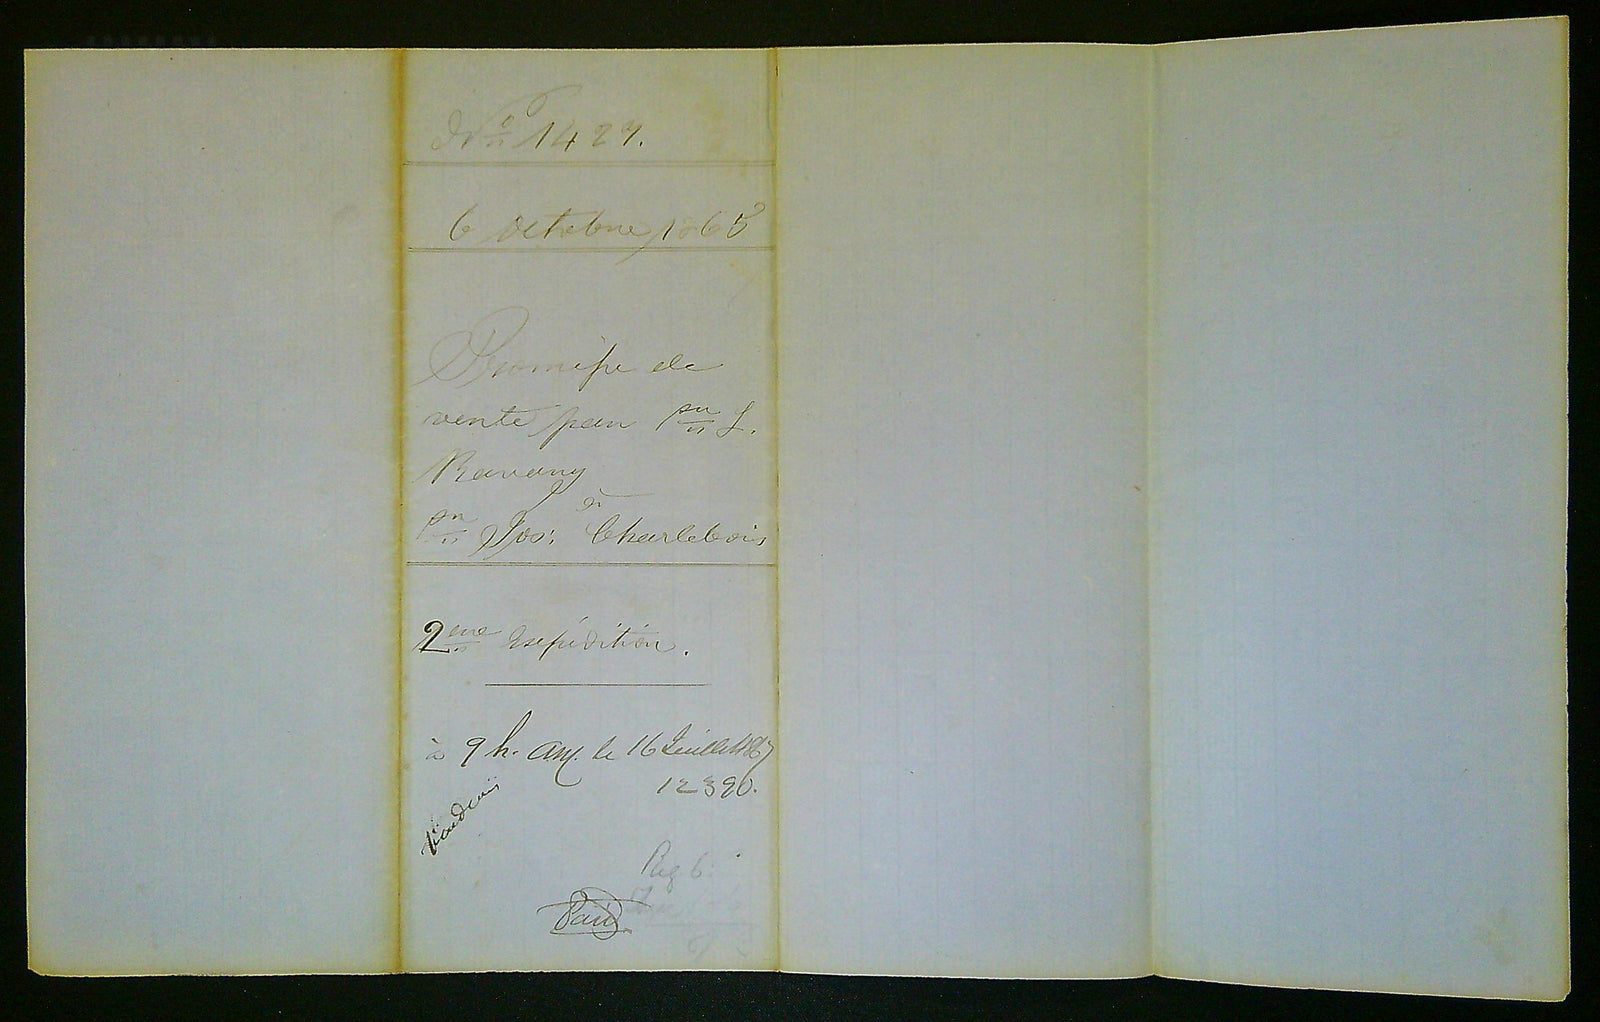 No 1427.
6 Octobre 1865
Promesse de
vente par Sr L.
Ravary
à
Sr Jos: Charlebois
2eme Expédition.
à 9 h. am. le 16 Juillet 1867
12390.
Reg 6
Paid